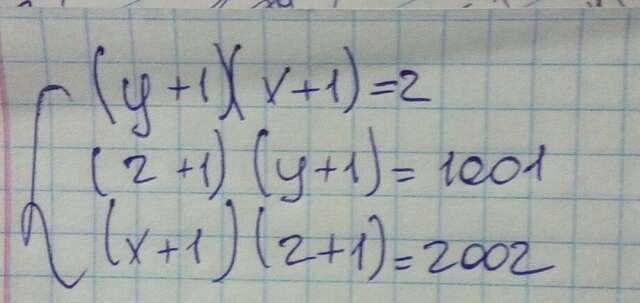 (y+1)(x+1)=2
(z+1)(y+1)=1001
(x+1)(z+1)=2002